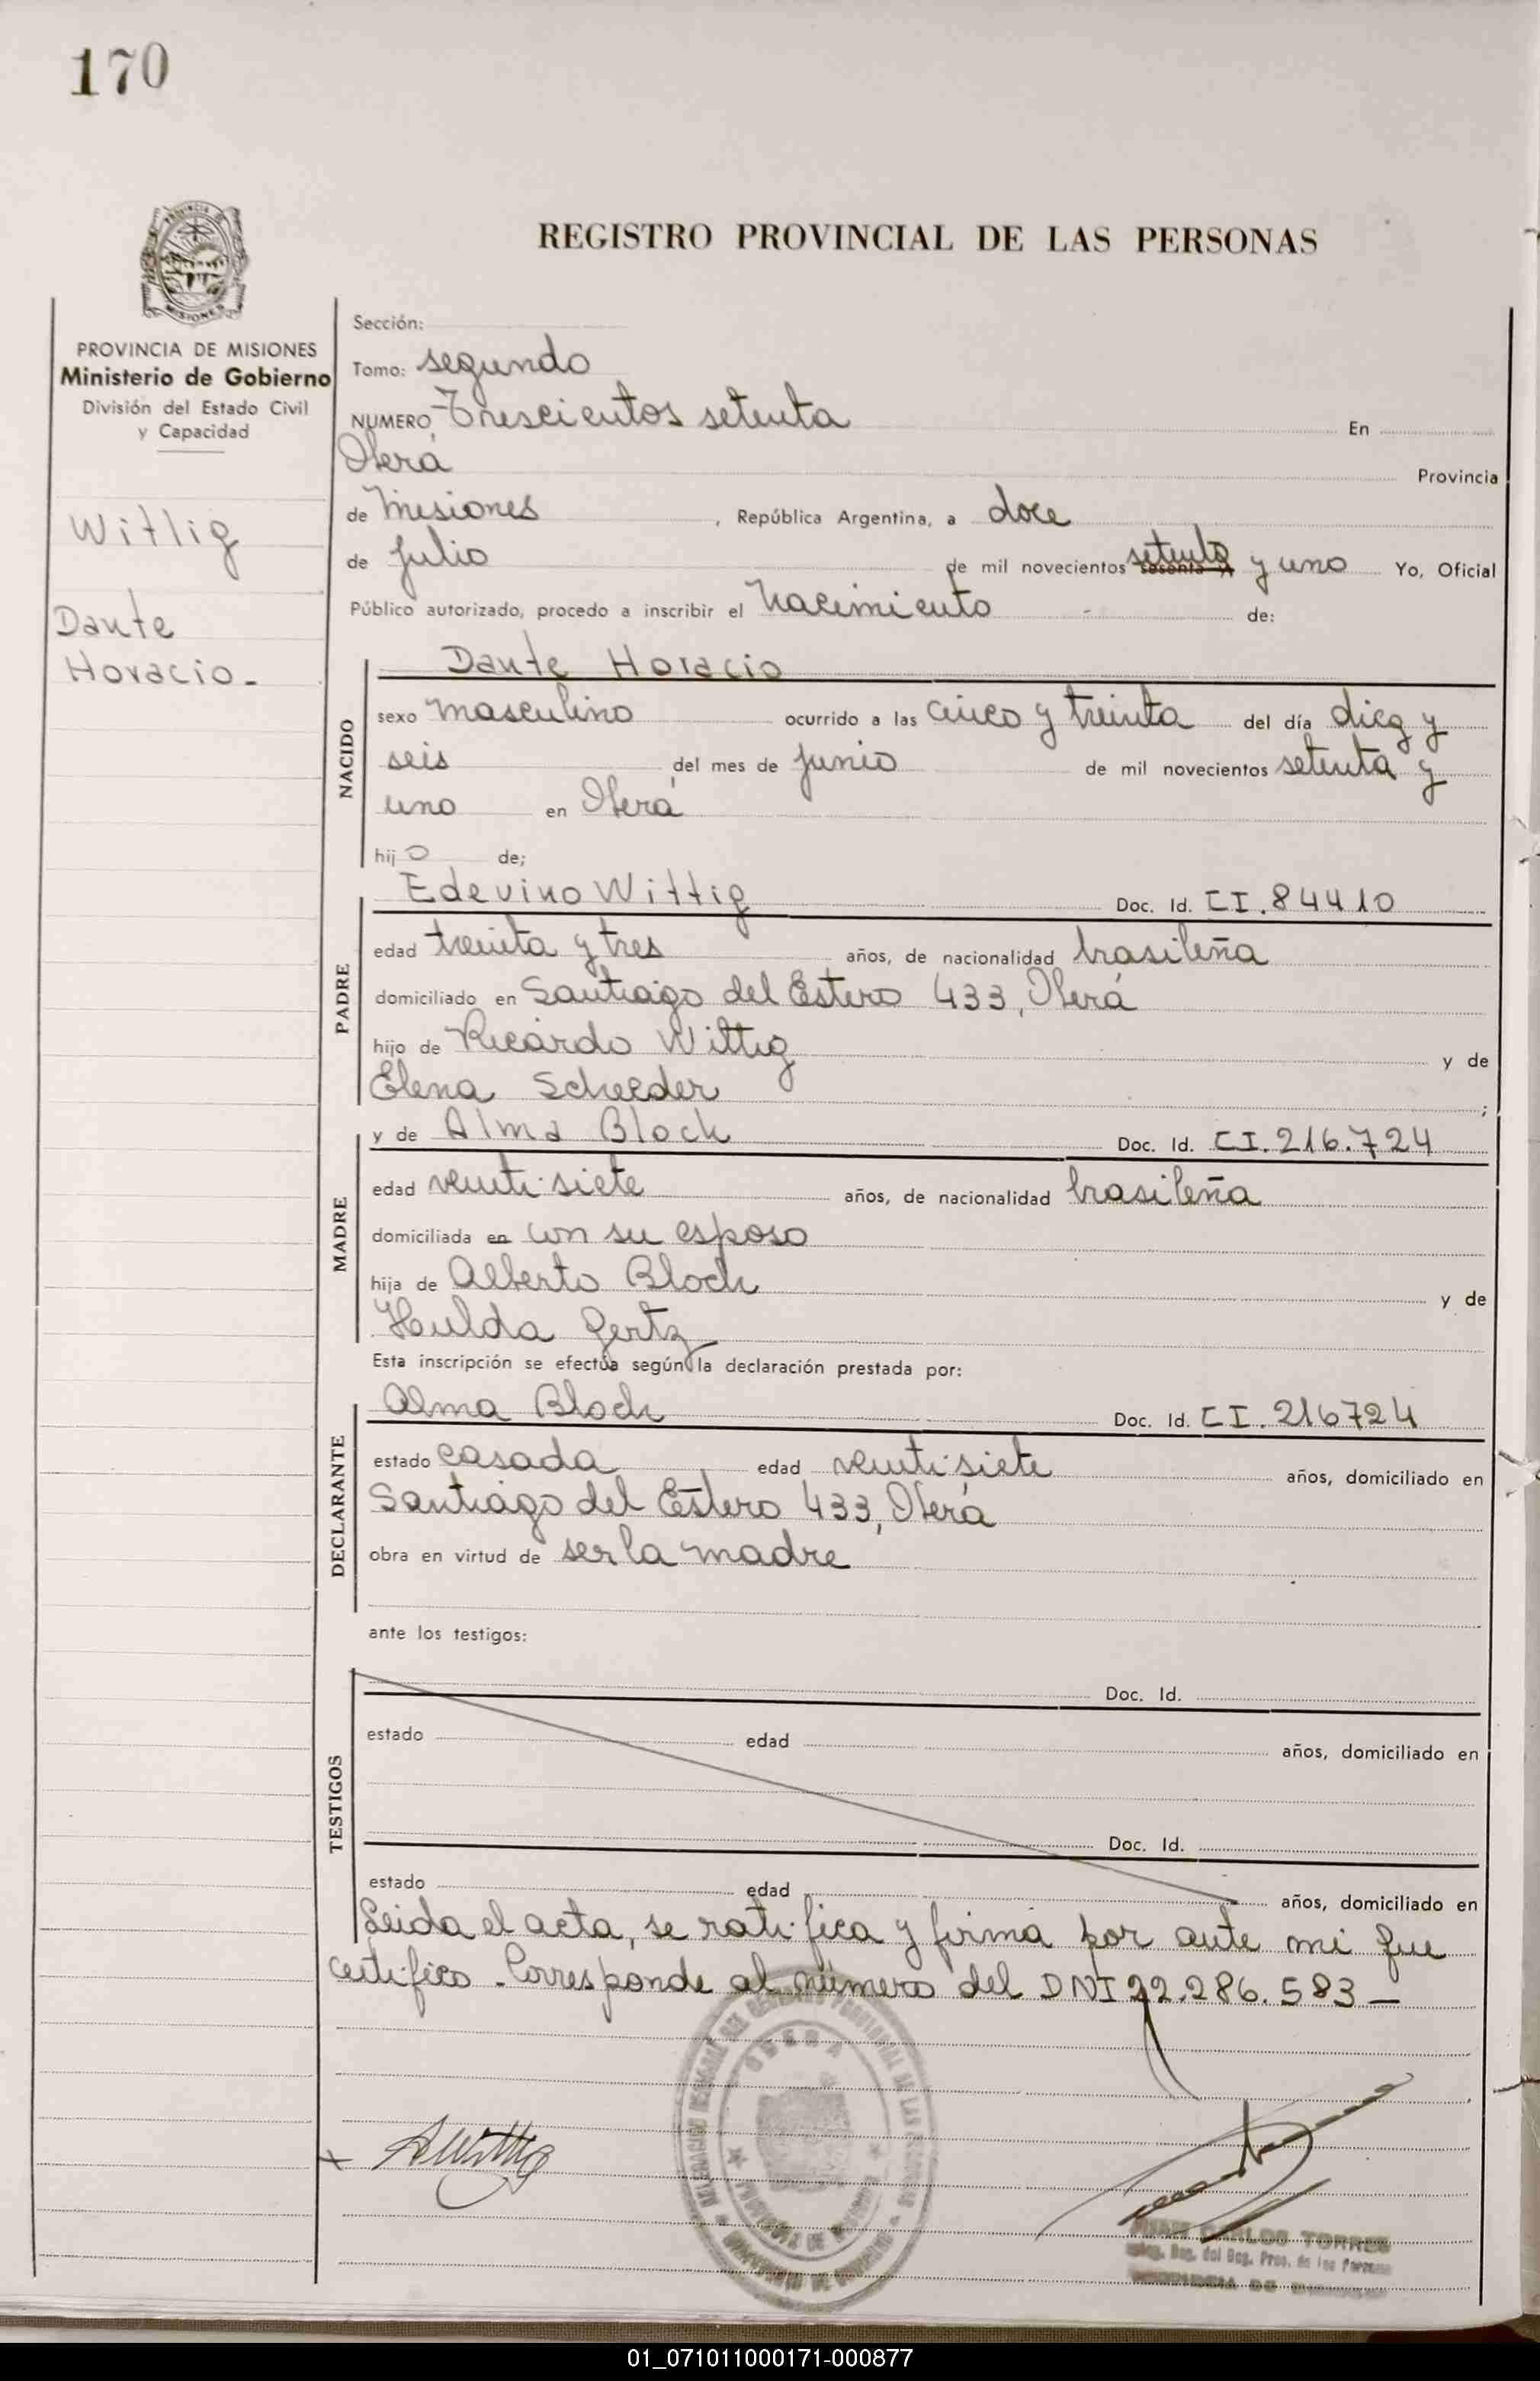 170
REGISTRO PROVINCIAL DE LAS PERSONAS
PROVINCIA DE MISIONES
Ministerio de Gobierno
División del Estado Civil
y Capacidad
Wittig
Dante
Horacio.-
Sección:
Tomo: segundo
NUMERO Trescientos setenta En
Oberá Provincia
de Misiones, República Argentina, a doce
de Julio de mil novecientos setenta y uno Yo, Oficial
Público autorizado, procedo a inscribir el Nacimiento de:
NACIDO
Dante Horacio
sexo masculino ocurrido a las cinco y treinta del día diez y
seis del mes de junio de mil novecientos setenta y
uno en Oberá
hijo de;
PADRE
Edevino Wittig Doc. Id. CI. 84410
edad treinta y tres años, de nacionalidad brasileña
domiciliado en Santiago del Estero 433, Oberá
hijo de Ricardo Wittig y de
Elena Scheeder;
MADRE
y de Alma Bloch Doc. Id. CI. 216.724
edad veinti-siete años, de nacionalidad brasileña
domiciliada en con su esposo
hija de Alberto Bloch y de
Hulda Gertz
Esta inscripción se efectúa según la declaración prestada por:
DECLARANTE
Alma Bloch Doc. Id. CI. 216724
estado casada edad veinti-siete años, domiciliado en
Santiago del Estero 433, Oberá
obra en virtud de ser la madre
ante los testigos:
TESTIGOS
Doc. Id.
estado edad años, domiciliado en
Doc. Id.
estado edad años, domiciliado en
Leida el acta, se ratifica y firma por ante mi que
certifico.- Corresponde al número del DNI 22.286.583 —
AWittig
CARLOS TORRES
01_071011000171-000877